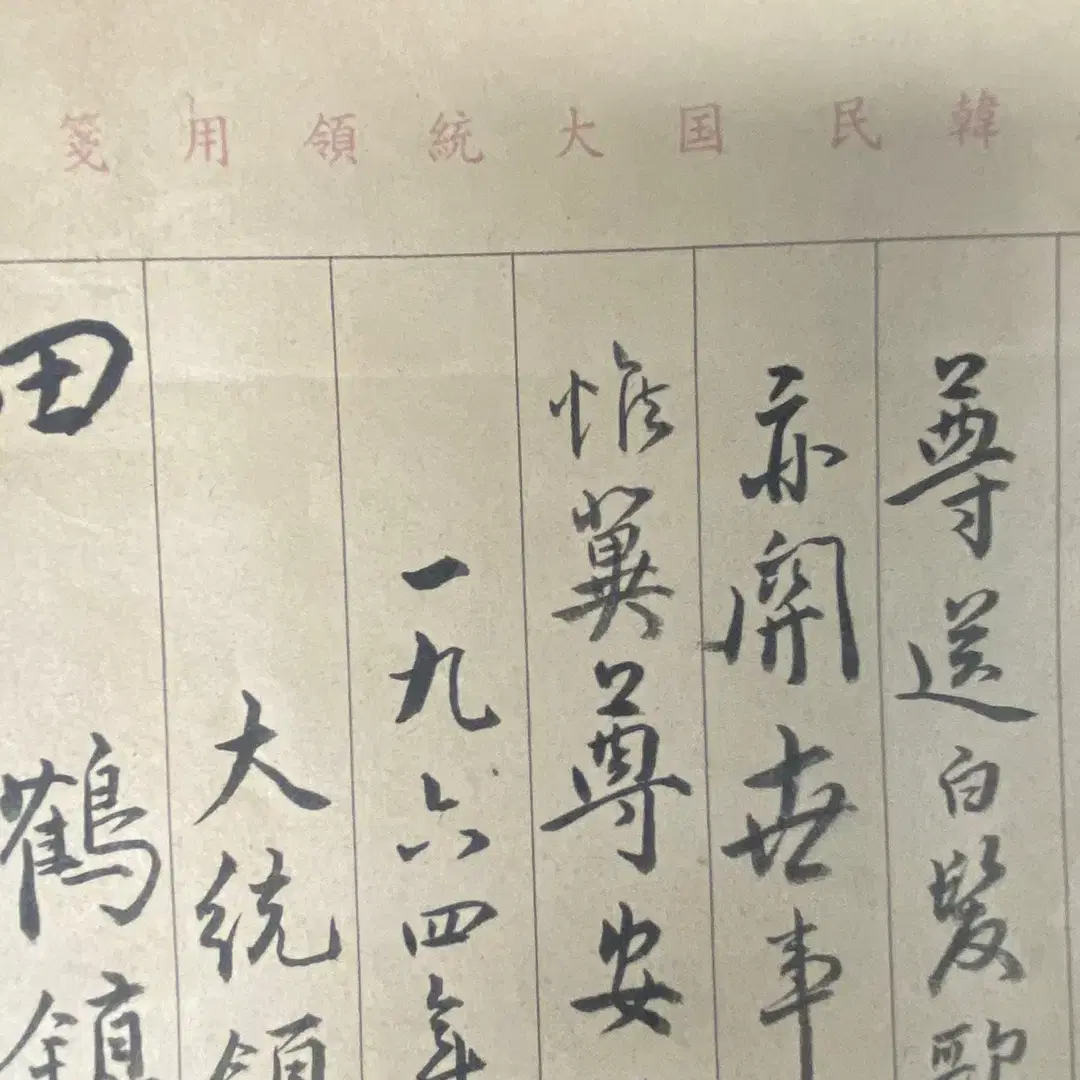 韓民国大統領用箋
尊送白髮歌
亦關世事
惟冀尊安
一九六四年
大統領
田鶴鎮